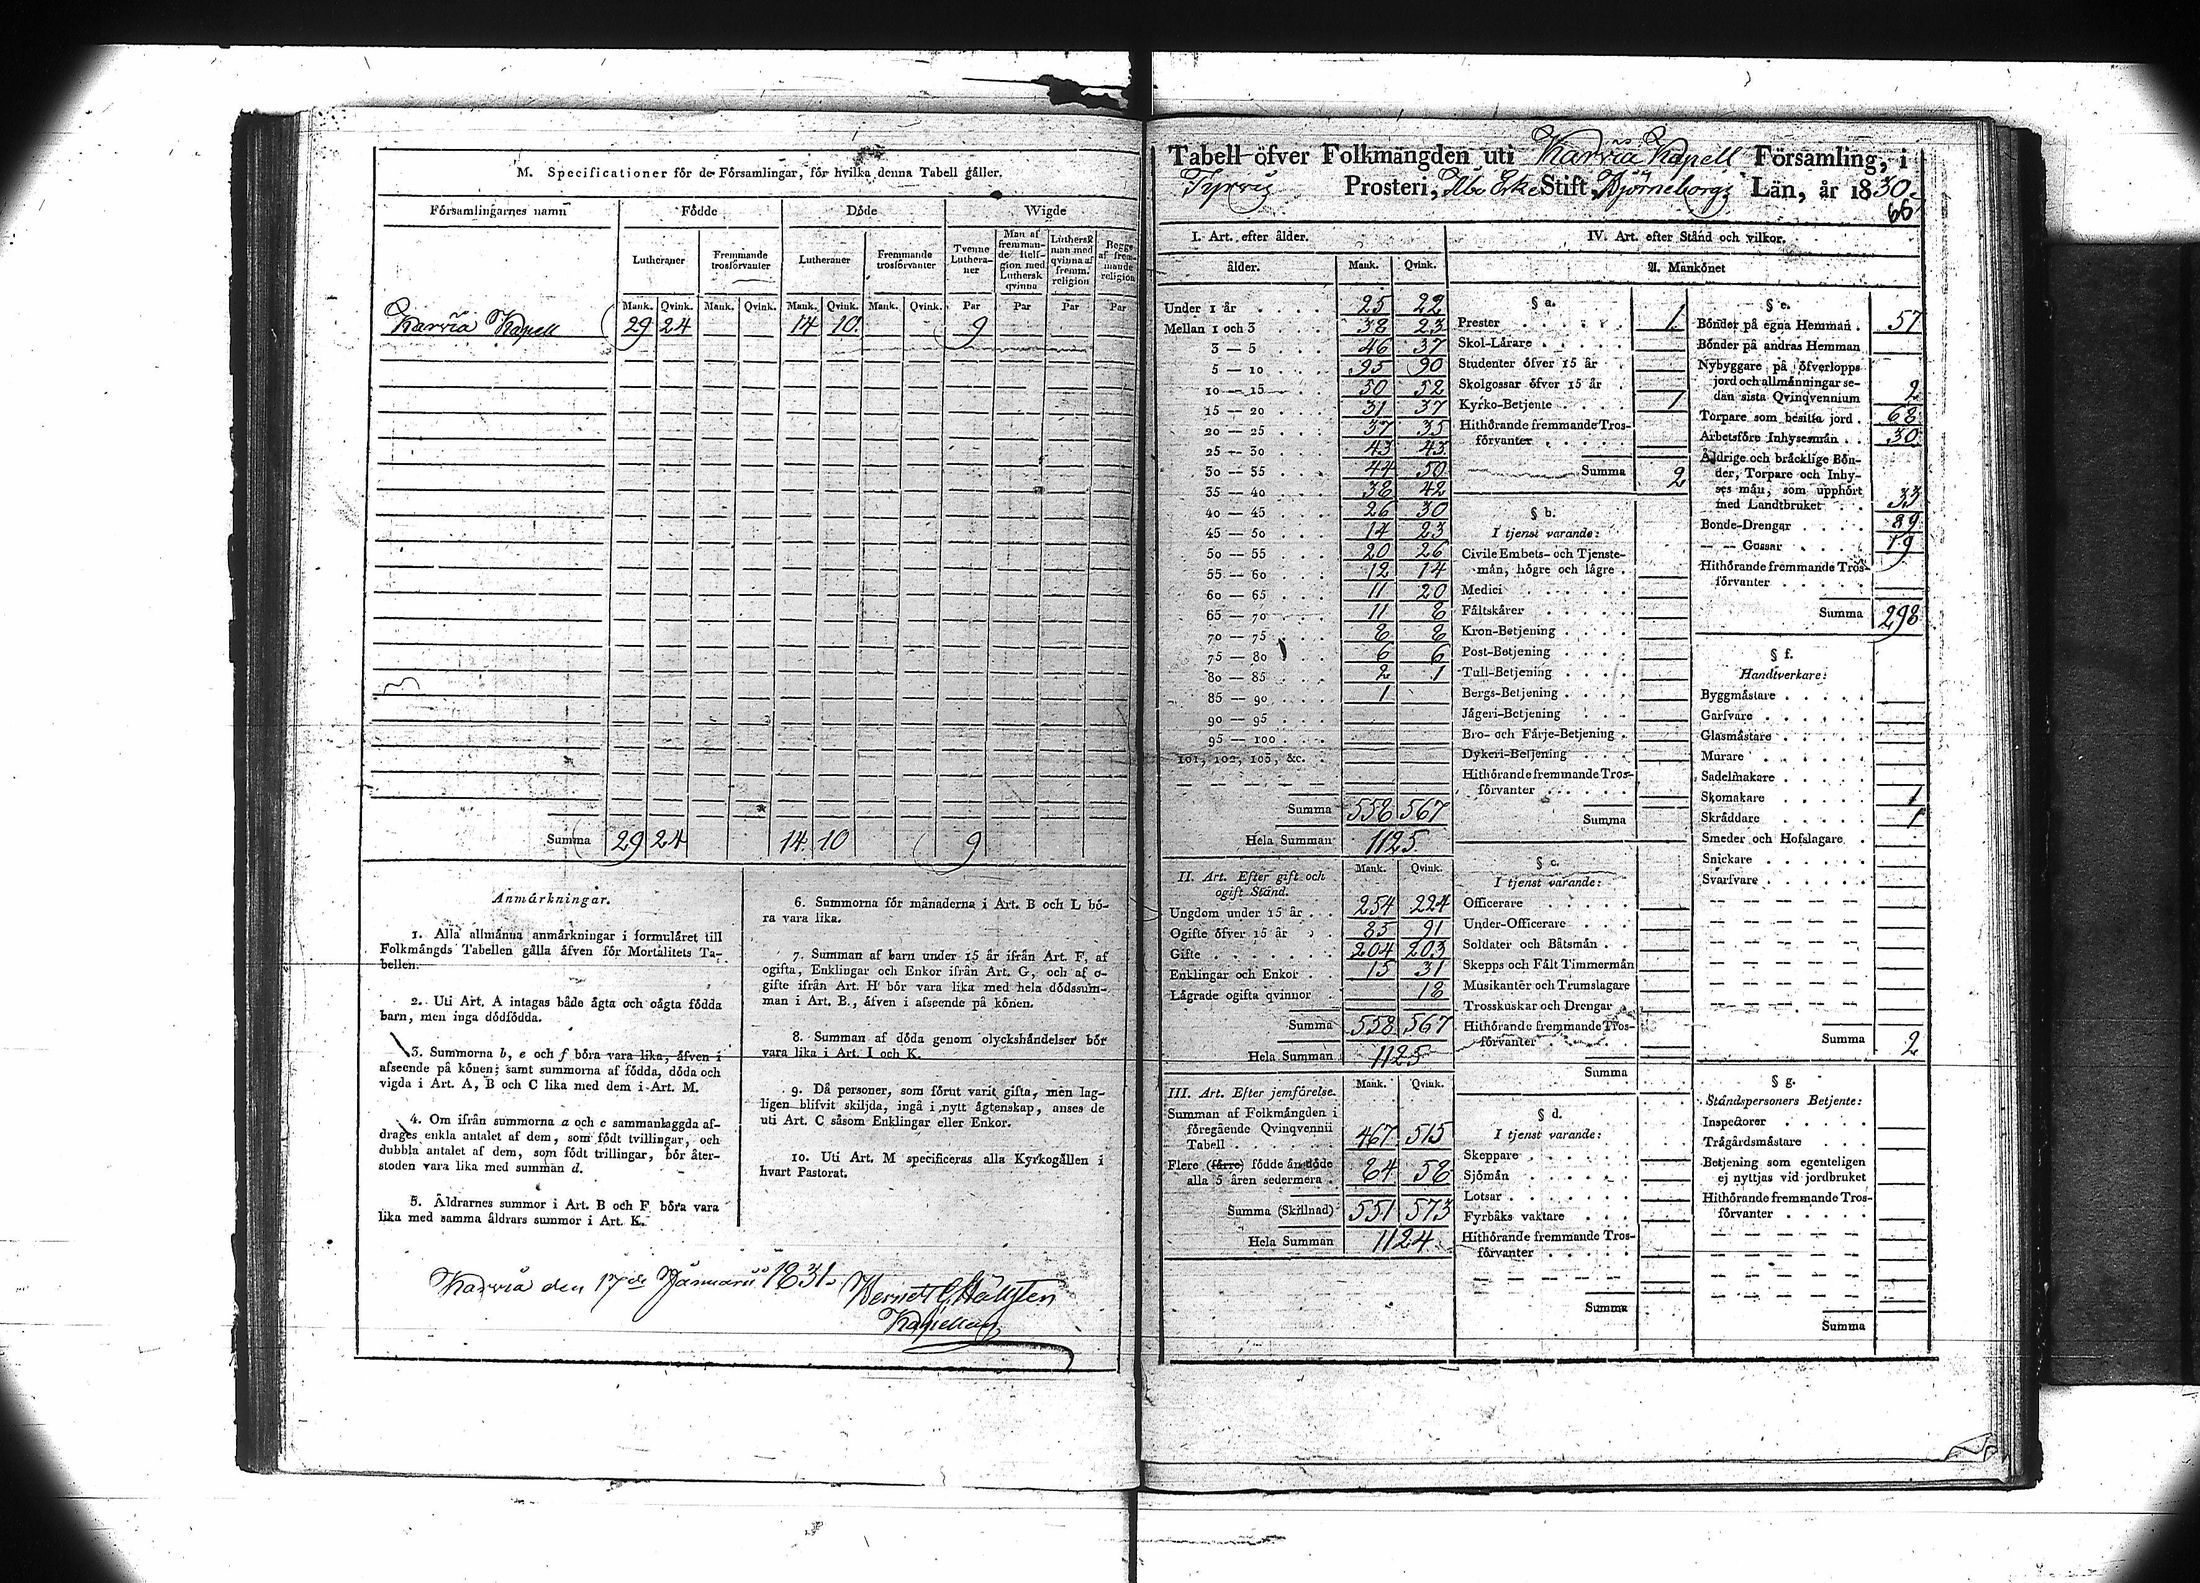 M. Specificationer för de Församlingar, för hvilka denna Tabell gäller.
Församlingarnes namn Födde Döde Wigde
Lutheraner Fremmande trosförvanter Lutheraner Fremmande trosförvanter Tvenne Lutheraner Man af fremmande Religion med Luthersk qvinna Luthersk man med qvinna af fremm. religion Begge af fremmande religion
Mank. Qvink. Mank. Qvink. Mank. Qvink. Mank. Qvink. Par Par Par Par
Karvia Kapell 29 24 14 10 9
Summa 29 24 14 10 9
Anmärkningar.
1. Alla allmänna anmärkningar i formuläret till
Folkmängds Tabellen gälla äfven för Mortalitets Ta-
bellen.
2. Uti Art. A intagas både ägta och oägta födda
barn, men inga dödfödda.
3. Summorna b, e och f böra vara lika, äfven i
afseende på könen; samt summorna af födda, döda och
vigda i Art. A, B och C lika med dem i Art. M.
4. Om ifrån summorna a och c sammanlaggda af-
drages enkla antalet af dem, som födt tvillingar, och
dubbla antalet af dem, som födt trillingar, bör åter-
stoden vara lika med summan d.
5. Åldrarnes summor i Art. B och F böra vara
lika med samma åldrars summor i Art. K.
6. Summorna för månaderna i Art. B och L bö-
ra vara lika.
7. Summan af barn under 15 år ifrån Art. F, af
ogifta, Enklingar och Enkor ifrån Art. G, och af o-
gifte ifrån Art. H bör vara lika med hela dödssum-
man i Art. B., äfven i afseende på könen.
8. Summan af döda genom olyckshändelser bör
vara lika i Art. I och K.
9. Då personer, som förut varit gifta, men lag-
ligen blifvit skiljda, ingå i nytt ägtenskap, anses de
uti Art. C såsom Enklingar eller Enkor.
10. Uti Art. M specificeras alla Kyrkogällen i
hvart Pastorat.
Karvia den 17de Januarii 1831.
Kapellan
Tabell öfver Folkmängden uti Karvia Kapell Församling, i
Tyrvis Prosteri, Åbo Erke Stift, Björneborgs Län, år 1830.
66
I. Art. efter ålder.
ålder. Mank. Qvink.
Under 1 år 25 22
Mellan 1 och 3 38 23
3 — 5 46 37
5 — 10 95 90
10 — 15 50 52
15 — 20 31 37
20 — 25 37 35
25 — 30 43 43
30 — 35 44 50
35 — 40 38 42
40 — 45 26 30
45 — 50 14 23
50 — 55 20 26
55 — 60 12 14
60 — 65 11 20
65 — 70 11 8
70 — 75 8 8
75 — 80 6 6
80 — 85 2 1
85 — 90 1
90 — 95
95 — 100
101, 102, 103, &c.
Summa 558 567
Hela Summan 1125
II. Art. Efter gift och ogift Stånd. Mank. Qvink.
Ungdom under 15 år 254 224
Ogifte öfver 15 år 85 91
Gifte 204 203
Enklingar och Enkor 15 31
Lägrade ogifta qvinnor 18
Summa 558 567
Hela Summan 1125
III. Art. Efter jemförelse. Mank. Qvink.
Summan af Folkmängden i
föregående Qvinqvennii
Tabell 467 515
Flere (färre) födde än döde
alla 5 åren sedermera 84 58
Summa (Skillnad) 551 573
Hela Summan 1124
IV. Art. efter Stånd och vilkor.
A. Mankönet
§ a.
Prester 1
Skol-Lärare
Studenter öfver 15 år
Skolgossar öfver 15 år
Kyrko-Betjente 1
Hithörande fremmande Tros-
förvanter
Summa 2
§ b.
I tjenst varande:
Civile Embets- och Tjenste-
män, högre och lägre
Medici
Fältskärer
Kron-Betjening
Post-Betjening
Tull-Betjening
Bergs-Betjening
Jägeri-Betjening
Bro- och Färje-Betjening
Dykeri-Betjening
Hithörande fremmande Tros-
förvanter
Summa
§ c.
I tjenst varande:
Officerare
Under-Officerare
Soldater och Båtsmän
Skepps och Fält Timmermän
Musikanter och Trumslagare
Trosskuskar och Drengar
Hithörande fremmande Tros-
förvanter
Summa
§ d.
I tjenst varande:
Skeppare
Sjömän
Lotsar
Fyrbåks vaktare
Hithörande fremmande Tros-
förvanter
Summa
§ e.
Bönder på egna Hemman 57
Bönder på andras Hemman
Nybyggare på öfverlopps
jord och allmänningar se-
dan sista Qvinqvennium 2
Torpare som besitta jord 68
Arbetsföre Inhysesmän 30
Åldrige och bräcklige Bön-
der, Torpare och Inhy-
ses män, som upphört
med Landtbruket 33
Bonde-Drengar 89
— — Gossar 19
Hithörande fremmande Tros-
förvanter
Summa 298
§ f.
Handtverkare:
Byggmästare
Garfvare
Glasmästare
Murare
Sadelmakare
Skomakare 1
Skräddare 1
Smeder och Hofslagare
Snickare
Svarfvare
Summa 2
§ g.
Ståndspersoners Betjente:
Inspectorer
Trägårdsmästare
Betjening som egenteligen
ej nyttjas vid jordbruket
Hithörande fremmande Tros-
förvanter
Summa